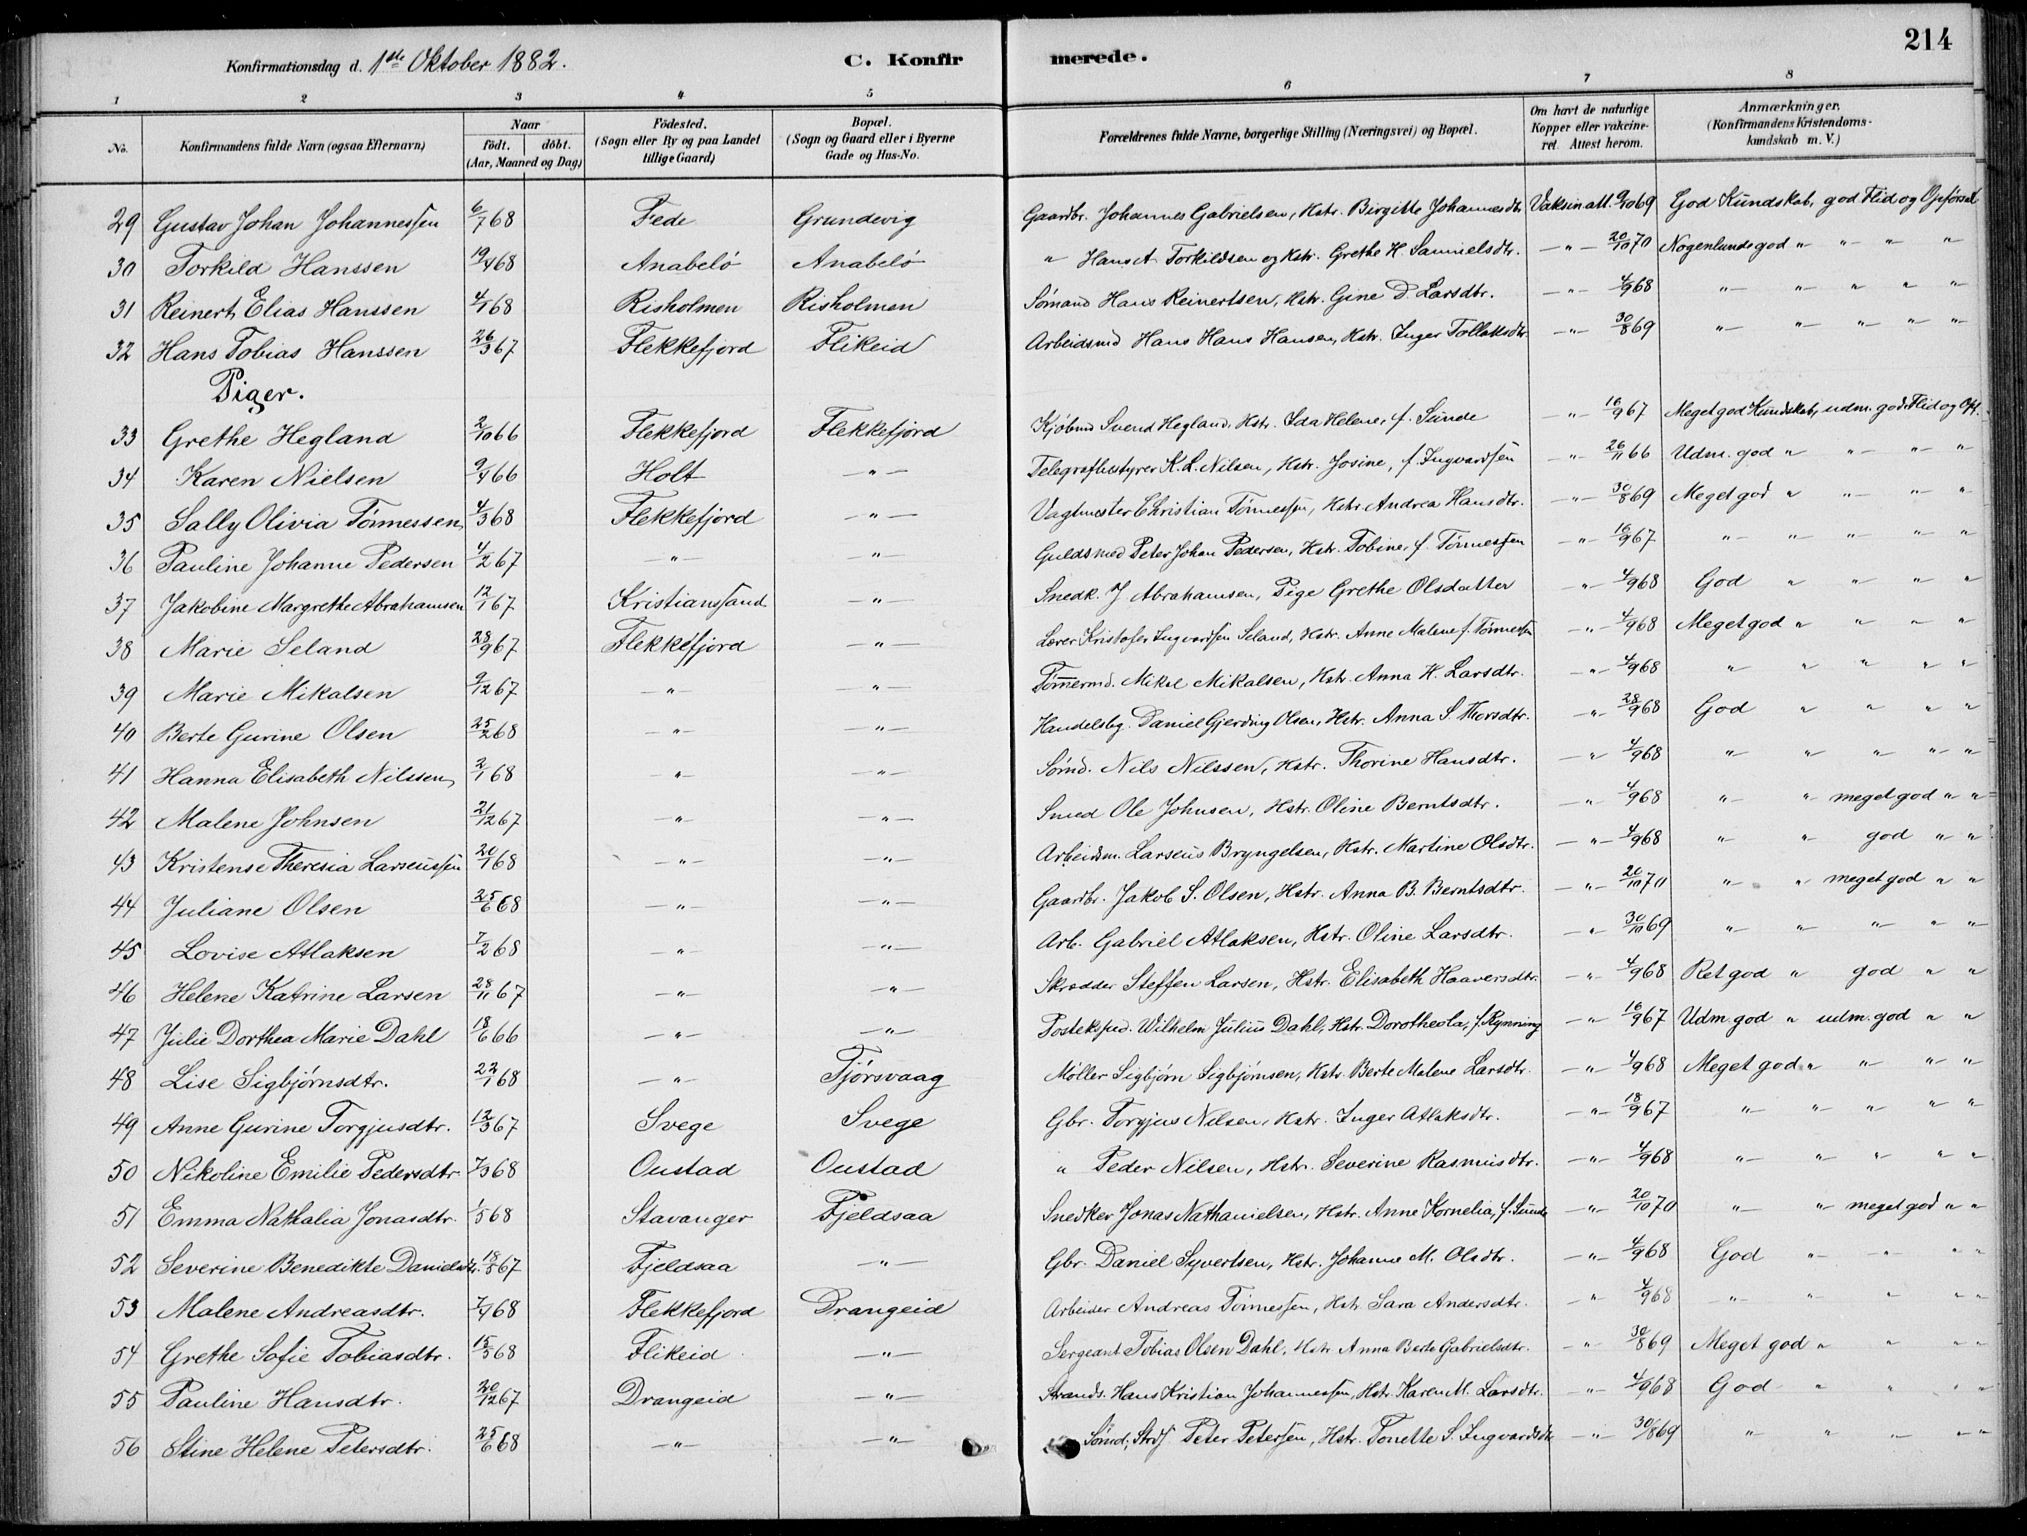 214
Konfirmationsdag d. 1ste Oktober 1882. C. Konfirmerede.
1 2 3 4 5 6 7 8
No. Konfirmandens fulde Navn (ogsaa Efternavn) Naar født. døbt. (Aar, Maaned og Dag) Fødested. (Sogn eller By og paa Landet tillige Gaard) Bopæl. (Sogn og Gaard eller i Byerne Gade og Hus-No. Forældrenes fulde Navne, borgerlige Stilling (Næringsvei) og Bopæl. Om havt de naturlige Kopper eller vakcineret. Attest herom. Anmærkninger. (Konfirmandens Kristendomskundskab m. V.)
29 Gustav Johan Johannessen 6/7 68 Fede Grundevig Gaardbr. Johannes Gabrielsen, Hstr. Birgitte Johannesdtr Vaksin att. 9/10 69 God Kundskab, god Flid og Opførsel
30 Torkild Hanssen 19/4 68 Anabelø Anabelø " Hans A. Torkildsen og Hstr. Grethe H. Samuelsdtr. -"- 20/10 70 Nogenlunde god " " " "
31 Reinert Elias Hanssen 4/1 68 Risholmen Risholmen Sømand Hans Reinertsen, Hstr. Gine D. Larsdtr. -"- 4/9 68 " " " " "
32 Hans Tobias Hanssen 26/3 67 Flekkefjord Flikeid Arbeidsmd Hans Hans Hansen, Hstr. Inger Tollaksdtr -"- 30/8 69 " " " " "
Piger.
33 Grethe Hegland 2/10 66 Flekkefjord Flekkefjord Kjøbmd Svend Hegland, Hstr. Ida Helene, f. Sunde -"- 16/9 67 Meget god Kundskab, udm. god Flid og Opf.
34 Karen Nielsen 9/4 66 Holt -"- Telegrafbestyrer K. L. Nilsen, Hstr. Josine, f. Ingvardsen -"- 26/11 66 Udm. god " " " "
35 Sally Olivia Tønnessen 4/3 68 Flekkefjord -"- Vagtmester Christian Tønnessen, Hstr Andrea Hansdtr. -"- 30/8 69 Meget god " " " "
36 Pauline Johanne Pedersen 4/2 67 -"- -"- Guldsmed Peter Johan Pedersen, Hstr. Tobine, f. Tønnessen -"- 16/9 67 " " " " "
37 Jakobine Margrethe Abrahamsen 12/1 67 Kristianssand -"- Snedk. J Abrahamsen, Pige Grethe Olsdatter -"- 4/9 68 God " " " "
38 Marie Seland 28/9 67 Flekkefjord -"- Lærer Kristofer Ingvardsen Seland, Hstr. Anne Malene f. Tønnessen -"- 4/9 68 Meget god " " " "
39 Marie Mikalsen 9/12 67 -"- -"- Tømmermd. Mikal Mikalsen, Hstr. Anna K. Larsdtr. -"- 4/9 68 " " " " "
40 Berte Gurine Olsen 25/2 68 -"- -"- Handelsbg. Daniel Gjerding Olsen, Hstr. Anna S. Thorsdtr. -"- 28/9 68 God " " " "
41 Hanna Elisabeth Nilssen 2/1 68 -"- -"- Sømd. Nils Nilssen, Hstr. Thorine Hansdtr. -"- 4/9 68 " " " " "
42 Malene Johnsen 21/12 67 -"- -"- Smed Ole Johnsen, Hstr. Oline Berntsdtr. -"- 4/9 68 " " meget god " "
43 Kristense Theresia Larseussen 20/1 68 -"- -"- Arbeidsm. Larseus Bryngelsen, Hstr. Martine Olsdtr. -"- 4/9 68 " " god " "
44 Juliane Olsen 25/6 68 -"- -"- Gaardbr. Jakob S. Olsen, Hstr. Anna B. Berntsdtr. -"- 20/10 70 " " meget god " "
45 Lovise Atlaksen 7/2 68 -"- -"- Arb. Gabriel Atlaksen, Hstr. Oline Larsdtr. -"- 30/10 69 " " " " "
46 Helene Katrine Larsen 28/11 67 -"- -"- Skrædder Steffen Larsen, Hstr. Elisabeth Haaversdtr. -"- 4/9 68 Ret god " god " "
47 Julie Dorthea Marie Dahl 18/6 66 -"- -"- Postekspd. Wilhelm Julius Dahl, Hstr. Dorotheola, f. Rynning -"- 16/9 67 Udm. god " udm. god " "
48 Lise Sigbjørnsdtr. 22/1 68 -"- Tjørsvaag Møller Sigbjørn Sigbjørnsen, Hstr. Berte Malene Larsdtr. -"- 4/9 68 Meget god " " " "
49 Anne Gurine Torgjusdtr. 12/3 67 Svege Svege Gbr. Torgjus Nilsen, Hstr. Inger Atlaksdtr. -"- 18/9 67 " " " " "
50 Nikoline Emilie Pedersdtr. 7/3 68 Oustad Oustad " Peder Nilsen, Hstr. Severine Rasmusdtr. -"- 4/9 68 " " " " "
51 Emma Nathalia Jonasdtr. 1/5 68 Stavanger Fjeldsaa Snedker Jonas Nathanielsen, Hstr. Anne Kornelia, f. Sunde -"- 20/10 70 " " meget god " "
52 Severine Benedikte Danielsdtr. 18/5 67 Fjeldsaa -"- Gbr. Daniel Syvertsen, Hstr. Johanne M. Olsdtr. -"- 4/9 68 God " " " "
53 Malene Andreasdtr. 7/4 68 Flekkefjord Drangeid Arbeider Andreas Tønnessen, Hstr. Sara Andersdtr. -"- 4/9 68 " " " " "
54 Grethe Sofie Tobiasdtr. 15/5 68 Flikeid -"- Sergeant Tobias Olsen Dahl, Hstr Anna Berte Gabrielsdtr. -"- 30/8 69 Meget god " " " "
55 Pauline Hansdtr. 20/12 67 Drangeid -"- Strands. Hans Kristian Johannessen, Hstr. Karen M. Larsdtr. -"- 4/9 68 God " " " "
56 Stine Helene Petersdtr. 25/6 68 -"- -"- Sømd, Strds Peter Petersen, Hstr. Tonette S. Ingvardsdtr -"- 30/8 69 " " " " "